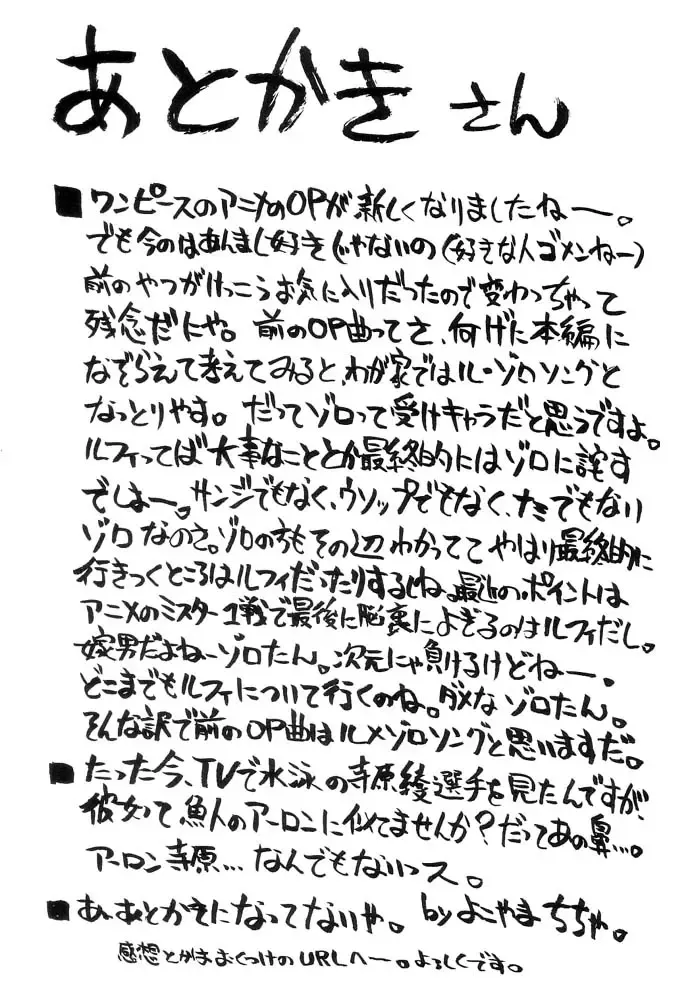 あとがき さん
■ワンピースのアニメのOPが新しくなりましたねー。
でも今のはあんまし好きじゃないの(好きな人ゴメンねー)
前のやつがけっこうお気に入りだったので変わっちゃって
残念だにゃ。前のOP曲ってさ、何げに本編に
なぞらえて考えてみると、わが家ではル・ゾロソングと
なっとりやす。だってゾロって受けキャラだと思うですよ。
ルフィってば大事なこととか最終的にはゾロに託す
でしょー。サンジでもなく、ウソップでもなく、ナミでもない
ゾロなのさ。ゾロの方もその辺わかっててやはり最終的に
行きつくところはルフィだったりするしね。最近のポイントは
アニメのミスター1戦で最後に脳裏によぎるのはルフィだし。
嫁男だよねーゾロたん。次元にゃ負けるけどねー。
どこまでもルフィについて行くのね。ダメなゾロたん。
そんな訳で前のOP曲はルメゾロソングと思いますだ。
■たった今、TVで水泳の寺原綾選手を見たんですが、
彼女って魚人のアーロンに似てませんか?だってあの鼻…。
アーロン寺原…なんでもないっス。
■あ、あとがきになってないや。 byよこやまちちゃ。
感想とかはおくつけのURLへー。よろしくです。